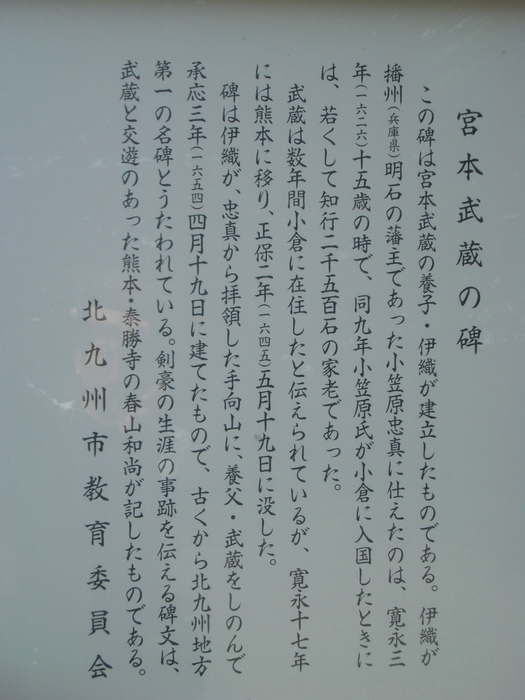 宮本武蔵の碑
この碑は宮本武蔵の養子・伊織が建立したものである。伊織が
播州(兵庫県)明石の藩主であった小笠原忠真に仕えたのは、寛永三
年(一六二六)十五歳の時で、同九年小笠原氏が小倉に入国したときに
は、若くして知行二千五百石の家老であった。
武蔵は数年間小倉に在住したと伝えられているが、寛永十七年
には熊本に移り、正保二年(一六四五)五月十九日に没した。
碑は伊織が、忠真から拝領した手向山に、養父・武蔵をしのんで
承応三年(一六五四)四月十九日に建てたもので、古くから北九州地方
第一の名碑とうたわれている。剣豪の生涯の事跡を伝える碑文は、
武蔵と交遊のあった熊本・泰勝寺の春山和尚が記したものである。
北九州市教育委員会